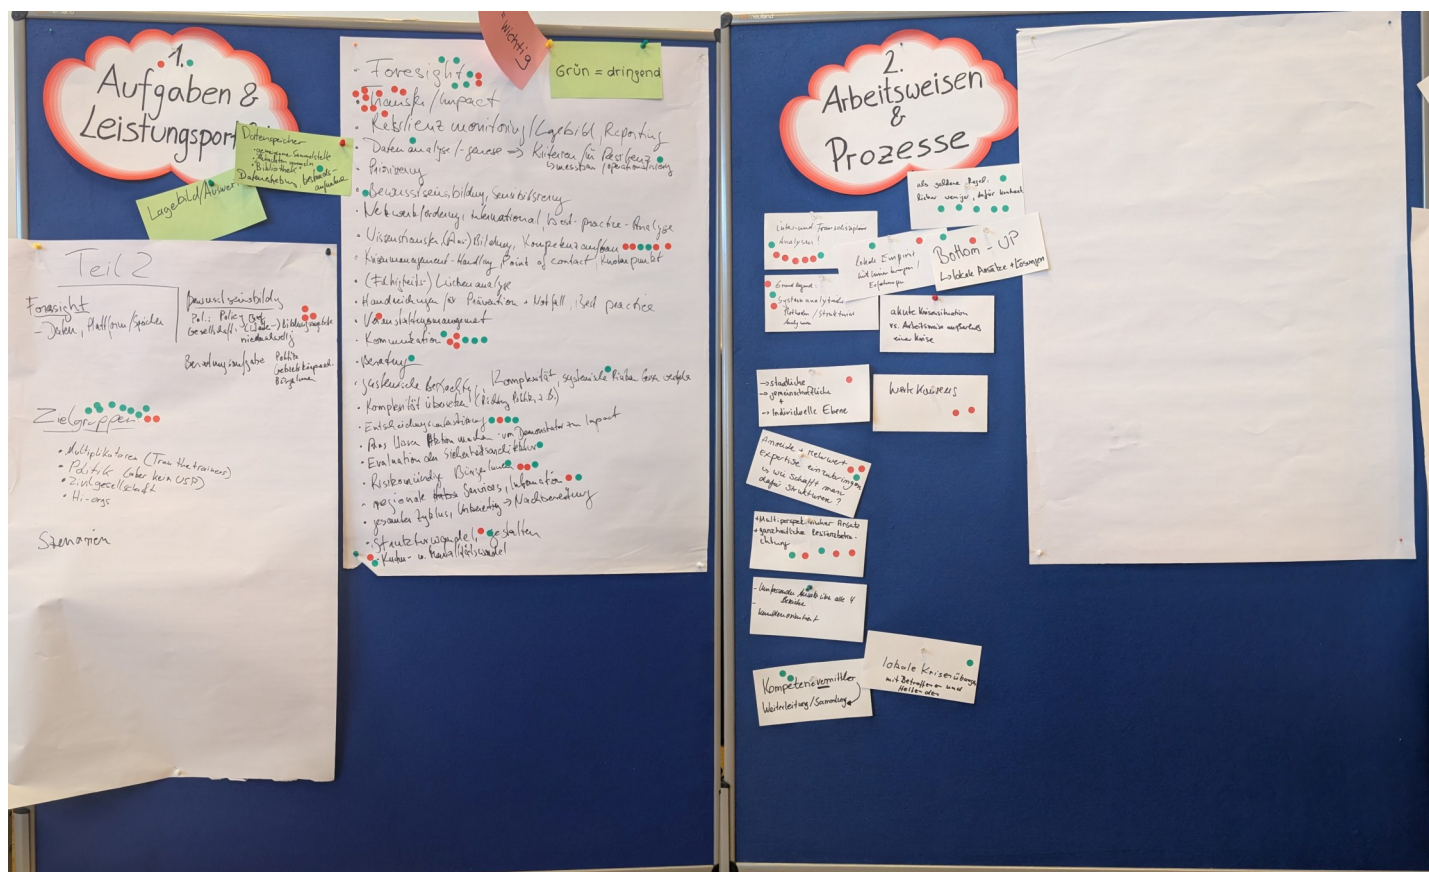 1.
Aufgaben &
Leistungsport
Datenspeicher
- gemeinsame Sammelstelle
"Bibliothek"
Datenerhebung Bestands-
aufnahme
Lagebild/Auswer
wichtig
Grün = dringend
Teil 2
Foresight
- Daten, Plattform/Speicher
Bewusstseinsbildung
niedrschwellig
Beratungsaufgabe Politik
Zielgruppen
• Multiplikatoren (Train the trainers)
• Politik (aber kein USP)
• Zivilgesellschaft
• Hi-orgs
Szenarien
• Foresight
• Transfer/Impact
• Resilienz monitoring/Lagebild, Reporting
• Datenanalyse/-genese → Kriterien für Resilienz
↳ messbar/operationalisierung
• Priorisierung
• Bewusstseinsbildung, Sensibilisierung
• Netzwerkförderung, International, best-practice-Analyse
• Wissenstransfer, (Aus-)Bildung, Kompetenzaufbau
• Krisenmanagement-Handling, Point of contact, Knotenpunkt
• (Fähigkeits-) Lückenanalyse
• Handreichungen für Prävention + Notfall, Best practice
• Veranstaltungsmanagement
• Kommunikation
• Beratung
• systemische Komplexität, systemische Risiken
• Komplexität übersetzen (Richtung Politik, z.B.)
• Entscheidungsunterstützung
• vom Demonstrator zum Impact
• Evaluation der Sicherheitsarchitektur
• Risikomündige BürgerInnen
• regionale Services, Information
• gesamter Zyklus, Vorbereitung → Nachbereitung
• Strukturwandel gestalten
• Kultur- u. Mentalitätswandel
2.
Arbeitsweisen
&
Prozesse
als goldene Regel:
lieber weniger, dafür konkret
Inter- und Transdisziplinäre
Analysen!
lokale Empirie
Erfahrungen
Bottom-UP
↳ lokale Ansätze + Lösungen
Grundlegend:
Systemanalytische
Methoden/Strukturierte
Analysen
akute Krisensituation
vs. Arbeitsweise ausserhalb
einer Krise
→ staatliche
→ gemeinschaftliche
+
→ Individuelle Ebene
Werte Konsens
Anreize + Mehrwert
Expertise einzubringen
↳ wie schafft man
dafür Strukturen?
+ Multiperspektivischer Ansatz
+ ganzheitliche Resilienzbetra-
chtung
- Umfassender Ansatz über alle 4
Bereiche
- kundenorientiert
Kompetenzvermittler
Weiterleitung/Sammlung
lokale Krisenübungen
mit Betroffenen und
Helfenden